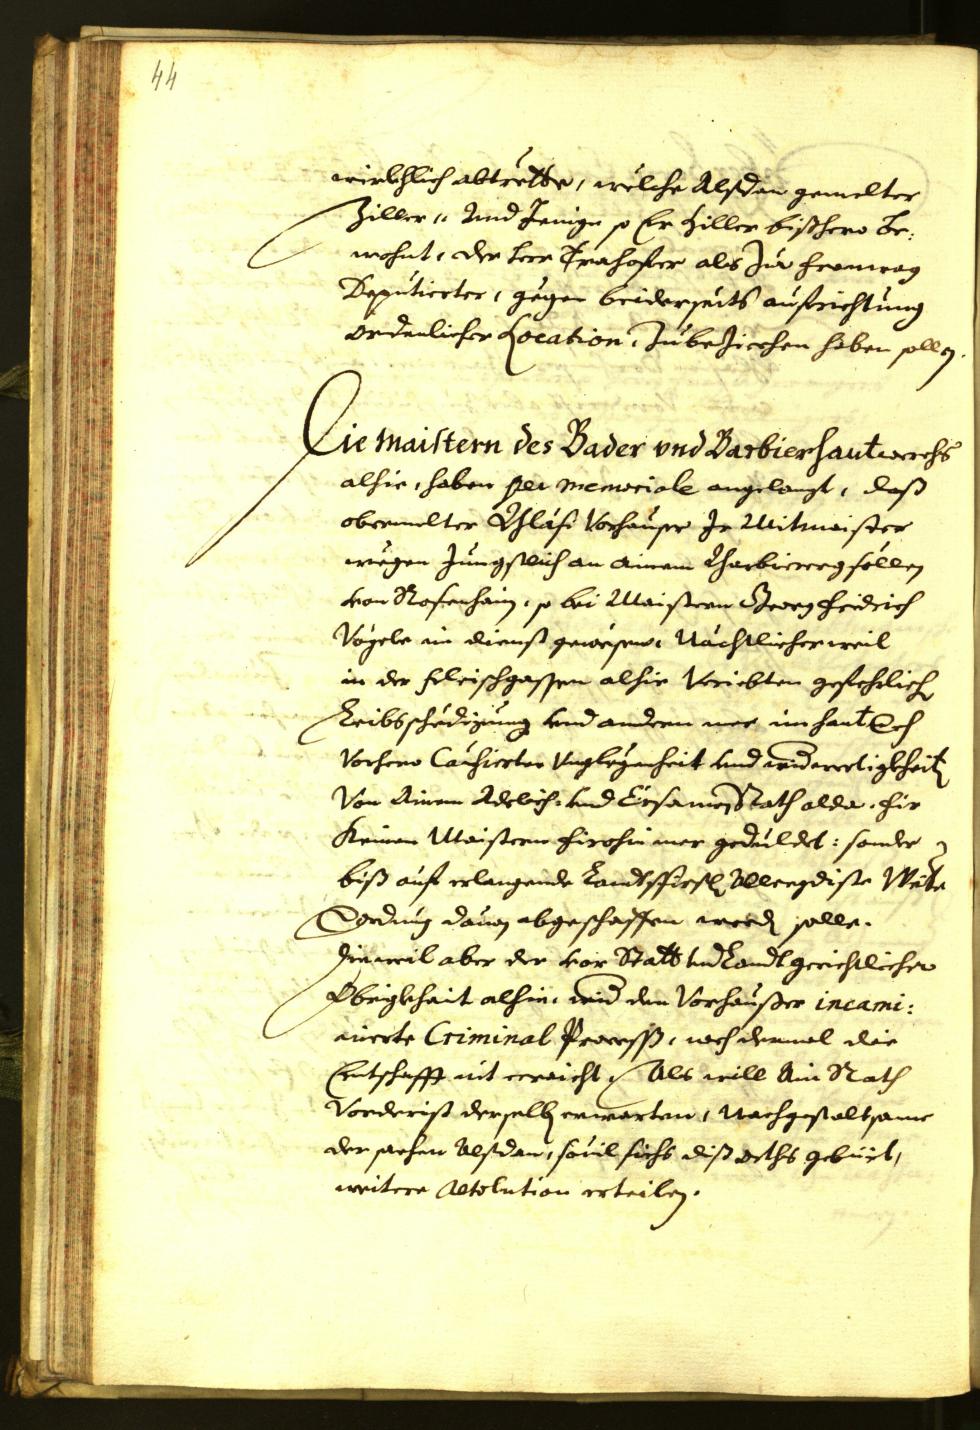 44
wirkhlich abtrette, welche Alßdan gemelter
Ziller, Und Jenige so Er Ziller bißhero be:
wohnt, der herr Trahofer als Zur
Deputierter, gegen beiderseits aufrichtung
ordenlicher Location, Zubeziechen haben sollen.
Die Maistern des Bader vnd Barbierhantwerchs
alhie, haben per memoriale angelangt, daß
obermelter Vorhauser Jr Mitmaister
wegen Jüngstlich an ainem Parbierergsöllen
von Rosenhaim, so bei Maistern Georg Fridrich
Vögele in dienst gewesen, Nächtlicherweil
in der fleischgassen alhie Veriebten gefehrlich
Leibsschedigung vnd andern mer im hantwerch
Vorhero Causierten Unglegenheit vnd widerwertigkheit
Von Ainem Adelich: vnd Ersamen Rath alda, fir
kheinen Maistern firohin mer geduldet: sonder
biß auf erlangende Landtsfirstl Allergdiste
davon abgeschaffen werden solle.
Dieweil aber der vor Statt vnd Landtgerichtlicher
Obrigkheit alhie, wid den Vorhauser incami:
nierte Criminal Process, noch dermal die
Entschafft nit erraicht, Als will Ain Rath
Vorderist derselben erwarten, Nachgestaltsame
der sachen Alßdan, sovil sichs diß orths gebürt,
weitere resolution erteilen.